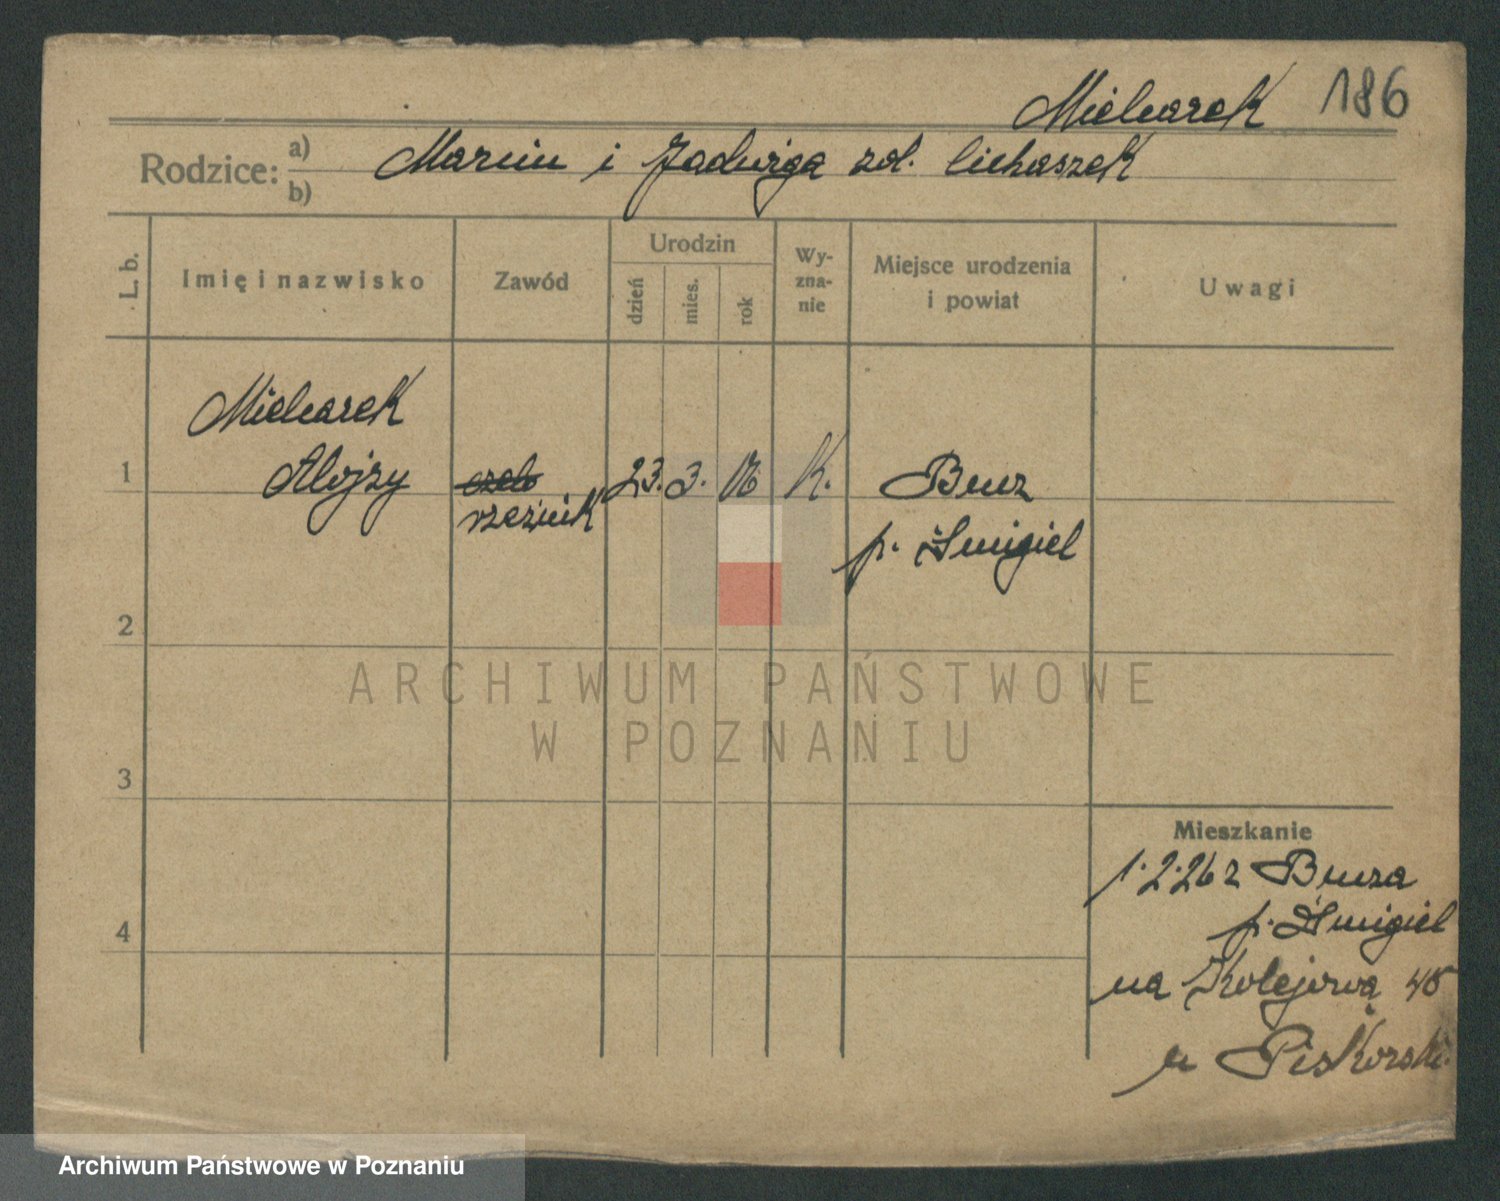 Mielcarek 186
Rodzice: a) Marcin i Jadwiga zd. Cichaszek
b)
L. b. Imię i nazwisko Zawód Urodzin dzień mies. rok Wy-zna-nie Miejsce urodzenia i powiat Uwagi
Mielcarek
1 Alojzy czel. 23. 3. K. Bucz
rzeźnik p. Śmigiel
2
ARCHIWUM PAŃSTWOWE
W POZNANIU
3
Mieszkanie
1.2.26 z Bucza
p. Śmigiel
4
na Kolejową 48
u Piskorski
Archiwum Państwowe w Poznaniu